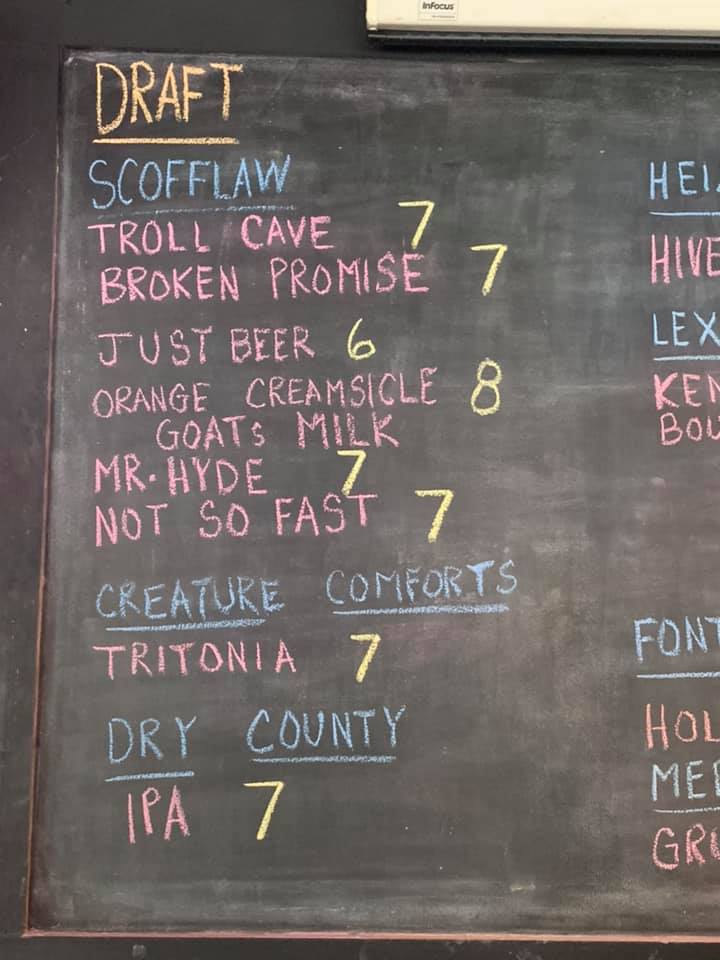 InFocus
DRAFT
SCOFFLAW
TROLL CAVE 7
BROKEN PROMISE 7
JUST BEER 6
ORANGE CREAMSICLE 8
GOATs MILK
MR. HYDE 7
NOT SO FAST 7
CREATURE COMFORTS
TRITONIA 7
DRY COUNTY
IPA 7
HEI
HIVE
LEX
KEN
BOU
FONT
HOL
MED
GRU